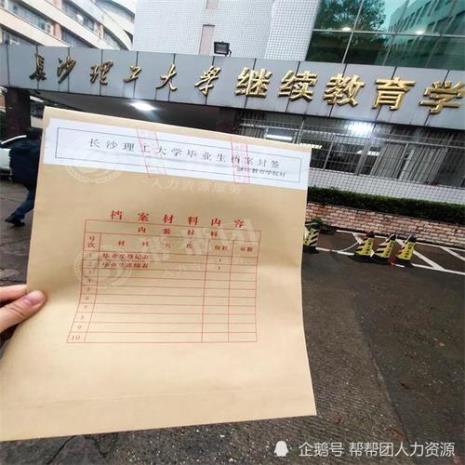 長沙理工大學继续教育学
长沙理工大学毕业生档案封签
继续教育学院封
档案材料内容
内装材料
号次 材料 份数
1 毕业生登记表 1
2 毕业生成绩表 1
3
4
5
6
7
8
9
10
人力资源服务
企鹅号 帮帮团人力资源